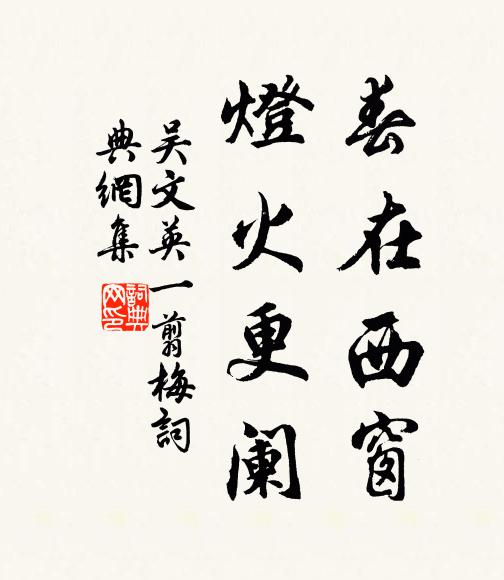 春在西窗
燈火更阑
吴文英一剪梅詞
典網集
詞典網印